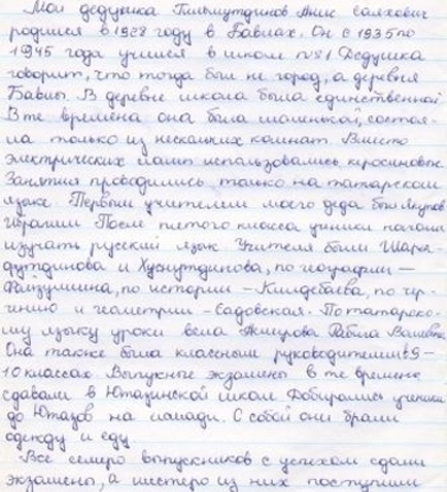 Мой дедушка Гильмутдинов Анис Салихович
родился в 1928 году в Бавлах. Он с 1935 по
1945 года учился в школе №1 Дедушка
говорит, что тогда был не город, а деревня
Бавлы. В деревне школа была единственной
В те времена она была маленькой, состоя-
ла только из нескольких комнат. Вместо
электрических ламп использовались керосиновые.
Занятия проводились только на татарском
языке. Первым учителем моего деда был Якупов
Ибрагим После пятого класса ученики начали
изучать русский язык Учителя были Шара-
футдинова и Хуснутдинова, по географии —
Файзуллина, по истории – Кильдебаева, по чер-
чению и геометрии – Садовская. По татарско-
му языку уроки вела Рабига
Она также была классным руководителем в 9 –
10 классах. Выпускные экзамены в те времена
сдавали в Ютазинской школе. Добирались ученики
до Ютазов на лошади. С собой они брали
одежду и еду
Все семеро выпускников с успехом сдали
экзамены, а шестеро из них поступили